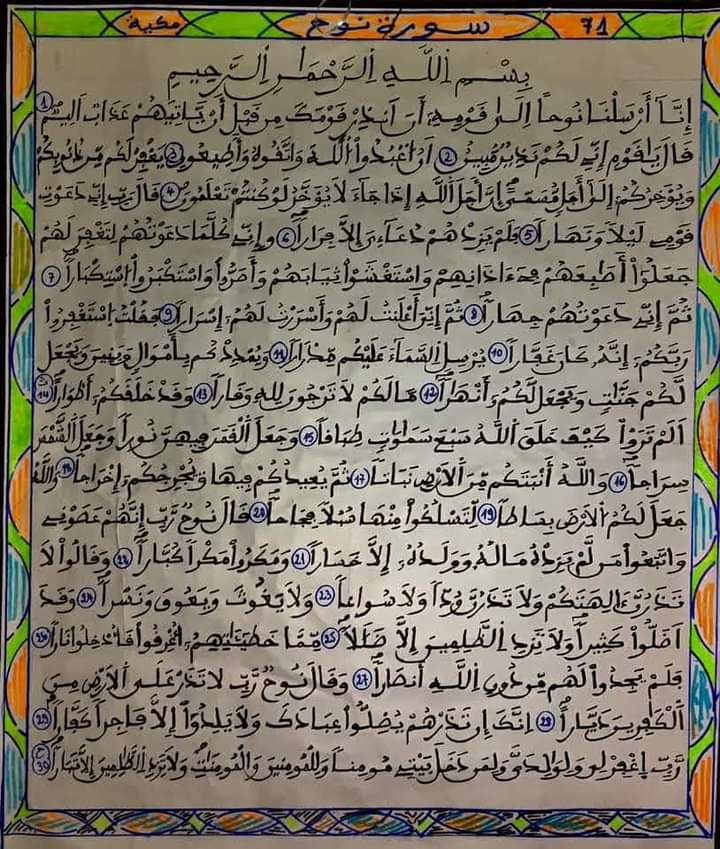 71 سورة نوح مكية
بِسْمِ اِللَّهِ اِلرَّحْمَٰنِ اِلرَّحِيمِ
إِنَّآ أَرْسَلْنَا نُوحاً إِلَىٰ قَوْمِهِۦٓ أَنَ اَنذِرْ قَوْمَكَ مِن قَبْلِ أَنْ يَّاتِيَهُمْ عَذَابٌ اَلِيمٌ 1
قَالَ يَٰقَوْمِ إِنِّے لَكُمْ نَذِيرٌ مُّبِينٌ 2 اَنُ اعْبُدُواْ اُللَّهَ وَاتَّقُوهُ وَأَطِيعُونِ 3 يَغْفِرْ لَكُم مِّن ذُنُوبِكُمْ
وَيُؤَخِّرْكُمُۥٓ إِلَىٰٓ أَجَلٖ مُّسَمّىًۖ اِنَّ أَجَلَ اَللَّهِ إِذَا جَآءَ لَا يُؤَخَّرُ لَوْ كُنتُمْ تَعْلَمُونَ 4 قَالَ رَبِّ إِنِّے دَعَوْتُ
قَوْمِے لَيْلاً وَنَهَاراً 5 فَلَمْ يَزِدْهُمْ دُعَآءِيَ إِلَّا فِرَاراً 6 وَإِنِّے كُلَّمَا دَعَوْتُهُمْ لِتَغْفِرَ لَهُمْ
جَعَلُوٓاْ أَصَٰبِعَهُمْ فِےٓ ءَاذَانِهِمْ وَاسْتَغْشَوْاْ ثِيَابَهُمْ وَأَصَرُّواْ وَاسْتَكْبَرُواْ اُسْتِكْبَاراً 7
ثُمَّ إِنِّے دَعَوْتُهُمْ جِهَاراً 8 ثُمَّ إِنِّيَ أَعْلَنتُ لَهُمْ وَأَسْرَرْتُ لَهُمُۥٓ إِسْرَاراً 9 فَقُلْتُ اُسْتَغْفِرُواْ
رَبَّكُمُۥٓ إِنَّهُۥ كَانَ غَفَّاراً 10 يُرْسِلِ اِلسَّمَآءَ عَلَيْكُم مِّدْرَاراً 11 وَيُمْدِدْكُم بِأَمْوَٰلٖ وَبَنِينَ وَيَجْعَل
لَّكُمْ جَنَّٰتٖ وَيَجْعَل لَّكُمُۥٓ أَنْهَٰراً 12 مَّا لَكُمْ لَا تَرْجُونَ لِلهِ وَقَاراً 13 وَقَدْ خَلَقَكُمُۥٓ أَطْوَاراً 14
اَلَمْ تَرَوْاْ كَيْفَ خَلَقَ اَللَّهُ سَبْعَ سَمَٰوَٰتٖ طِبَاقاً 15 وَجَعَلَ اَلْقَمَرَ فِيهِنَّ نُوراً وَجَعَلَ اَلشَّمْسَ
سِرَاجاً 16 وَاللَّهُ أَنۢبَتَكُم مِّنَ اَلَارْضِ نَبَاتاً 17 ثُمَّ يُعِيدُكُمْ فِيهَا وَيُخْرِجُكُمُۥٓ إِخْرَاجاً 18 وَاللَّهُ
جَعَلَ لَكُمُ اُلَارْضَ بِسَاطاً 19 لِّتَسْلُكُواْ مِنْهَا سُبُلاً فِجَاجاً 20 قَالَ نُوحٌ رَّبِّ إِنَّهُمْ عَصَوْنِے
وَاتَّبَعُواْ مَن لَّمْ يَزِدْهُ مَالُهُۥ وَوَلَدُهُۥٓ إِلَّا خَسَاراً 21 وَمَكَرُواْ مَكْراً كُبَّاراً 22 وَقَالُواْ لَا
تَذَرُنَّ ءَالِهَتَكُمْ وَلَا تَذَرُنَّ وُدّاً وَلَا سُوَاعاً 23 وَلَا يَغُوثَ وَيَعُوقَ وَنَسْراً 24 وَقَدَ
اَضَلُّواْ كَثِيراً وَلَا تَزِدِ اِلظَّٰلِمِينَ إِلَّا ضَلَٰلاً 25 مِّمَّا خَطِيٓـَٰٔتِهِمُۥٓ أُغْرِقُواْ فَأُدْخِلُواْ نَاراً 26
فَلَمْ يَجِدُواْ لَهُم مِّن دُونِ اِللَّهِ أَنصَاراً 27 وَقَالَ نُوحٌ رَّبِّ لَا تَذَرْ عَلَى اَلَارْضِ مِنَ
اَلْكَٰفِرِينَ دَيَّاراً 28 اِنَّكَ إِن تَذَرْهُمْ يُضِلُّواْ عِبَادَكَ وَلَا يَلِدُوٓاْ إِلَّا فَاجِراً كَفَّاراً 29
رَّبِّ اِغْفِرْ لِے وَلِوَٰلِدَيَّ وَلِمَن دَخَلَ بَيْتِے مُومِناً وَلِلْمُومِنِينَ وَالْمُومِنَٰتِ وَلَا تَزِدِ اِلظَّٰلِمِينَ إِلَّا تَبَاراً 30